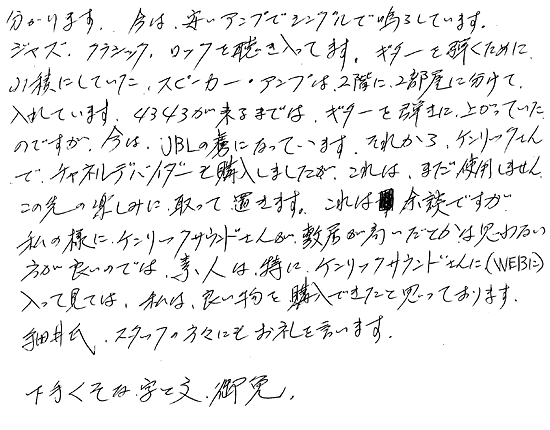 分かります。今は、安いアンプでシングルで鳴らしています。
ジャズ、クラシック、ロックを聴き入ってます。ギターを弾くために
山積にしていた、スピーカー・アンプは、2階に、2部屋に分けて、
入れています。4343が来るまでは、ギターを弾きに、上がっていた
のですが、今は、JBLの虜になっています。それから、ケンリックさん
で、チャネルデバイダーを購入しましたが、これは、まだ使用しません。
この先の楽しみに、取って置きます。これは余談ですが
私の様に、ケンリックサウンドさんが、敷居が高いだとかは思わない
方が良いのでは、素人は、特に、ケンリックサウンドさんに(WEBに)
入って見ては、私は、良い物を購入できたと思っております。
細井氏、スタッフの方々にもお礼を言います。
下手くそな字と文、御免。